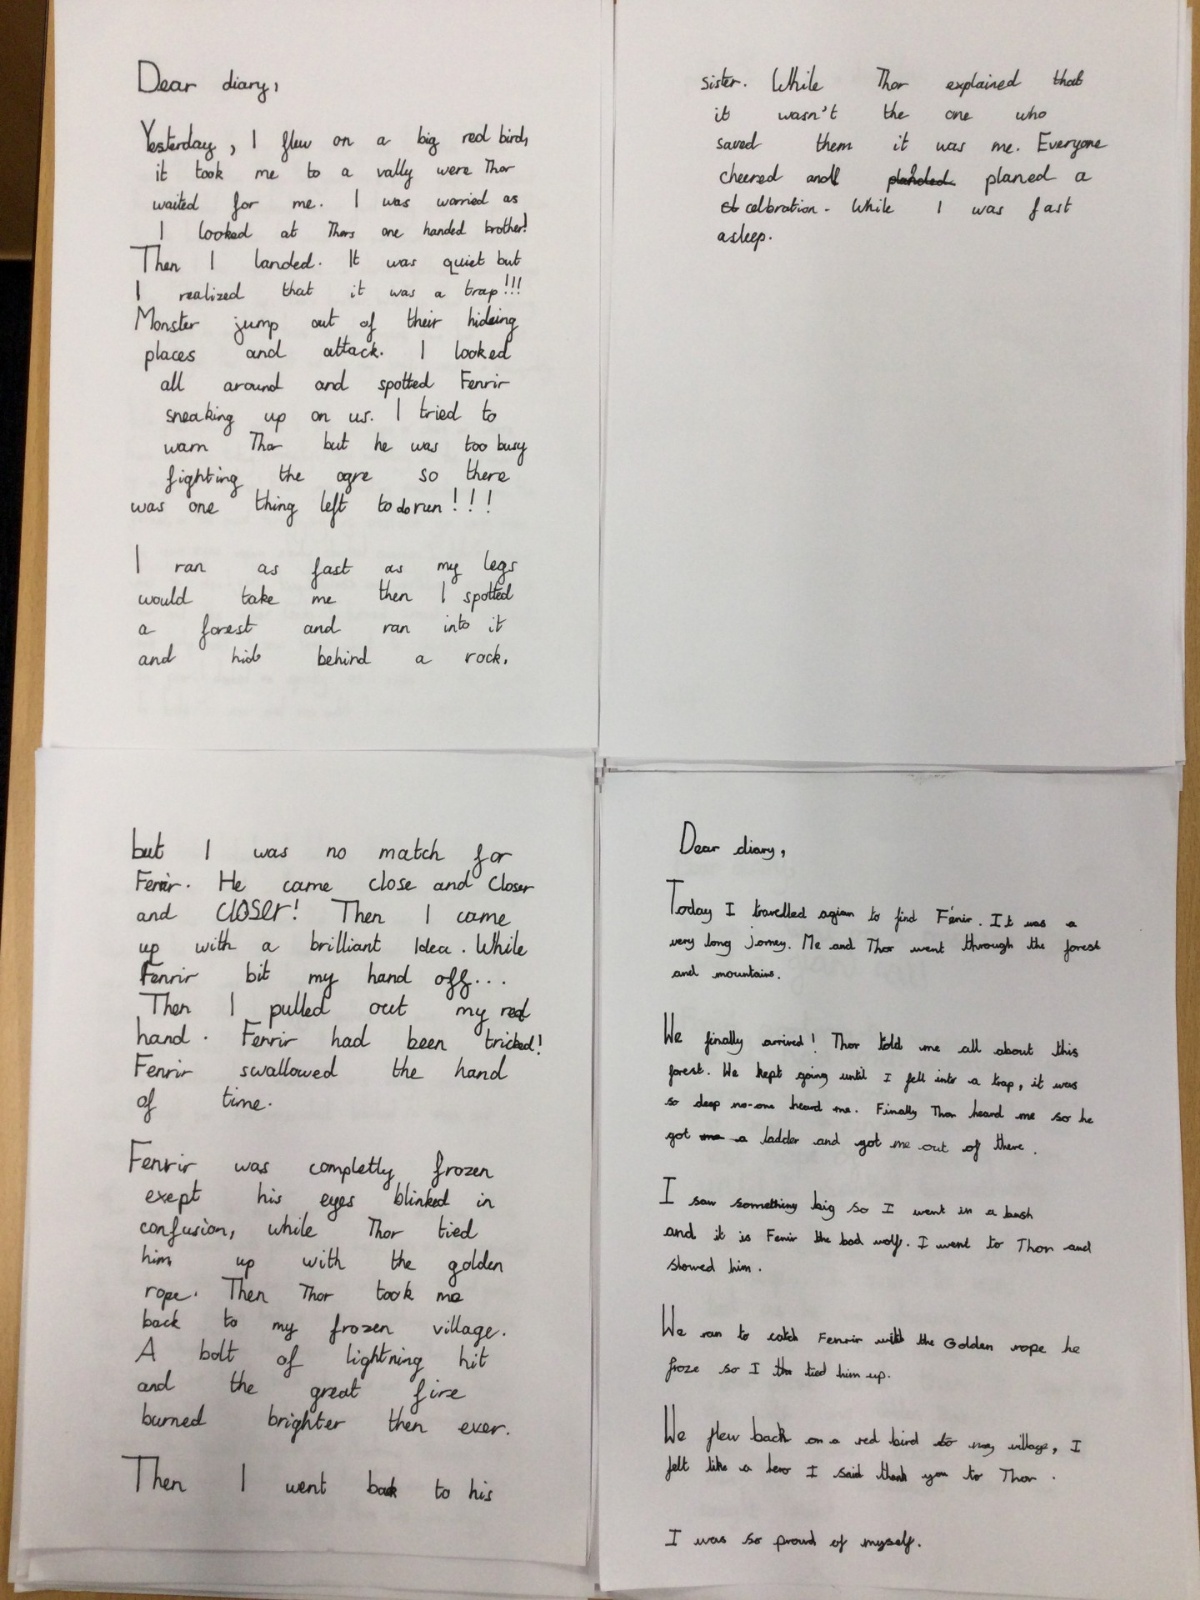 Dear diary,
Yesterday, I flew on a big red bird,
it took me to a vally were Thor
waited for me. I was worried as
I looked at Thors one handed brother!
Then I landed. It was quiet but
I realized that it was a trap!!!
Monster jump out of their hideing
places and attack. I looked
all around and spotted Fenrir
sneaking up on us. I tried to
warn Thor but he was too busy
fighting the ogre so there
was one thing left to do run!!!
I ran as fast as my legs
would take me then I spotted
a forest and ran into it
and hid behind a rock,
but I was no match for
Fenrir. He came close and closer
and closer! Then I came
up with a brilliant Idea. While
Fenrir bit my hand off...
Then I pulled out my real
hand. Fenrir had been tricked!
Fenrir swallowed the hand
of time.
Fenrir was completly frozen
exept his eyes blinked in
confusion, while Thor tied
him up with the golden
rope. Then Thor took me
back to my frozen village.
A bolt of lightning hit
and the great fire
burned brighter then ever.
Then I went back to his
sister. While Thor explained that
it wasn't the one who
saved them it was me. Everyone
cheered and planed a
celbration. While I was fast
asleep.
Dear diary,
Today I travelled agian to find Fenir. It was a
very long jorney. Me and Thor went through the forest
and mountains.
We finally arrived! Thor told me all about this
forest. We kept going until I fell into a trap, it was
so deep no-one heard me. Finally Thor heard me so he
got a ladder and got me out of there.
I saw something big so I went in a bush
and it is Fenrir the bad wolf. I went to Thor and
showed him.
We ran to catch Fenrir with the Golden rope he
froze so I tied him up.
We flew back on a red bird to my village, I
felt like a hero I said thank you to Thor.
I was so proud of myself.